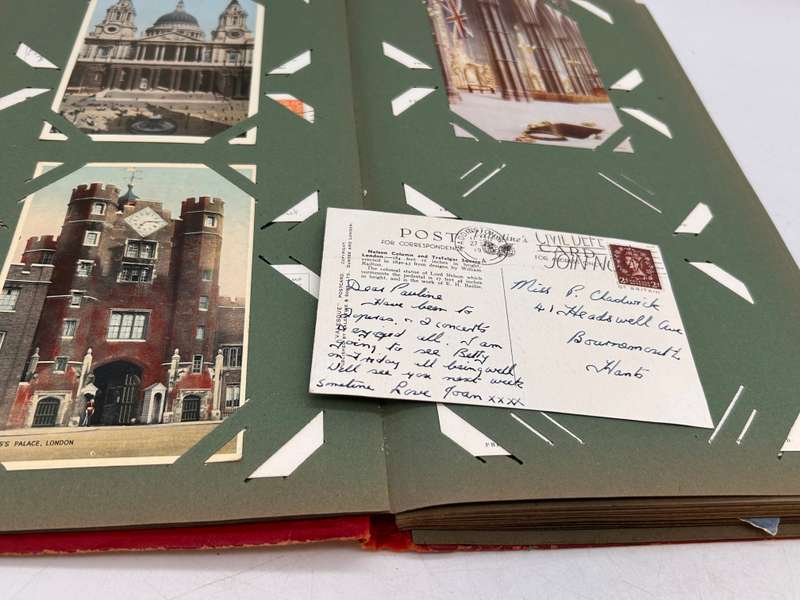 POST
Valentine's
FOR CORRESPONDENCE
CIVIL DEFE
JOIN NO
Nelson Column and Trafalgar Square,
London.
in height, and is the work of E. H. Baily.
Dear Pauline
Have been to
2 concerts
enjoyed all. I am
going to see Betty
on Friday all being well.
Will see you next week
Sometime Love Joan xxxx
Miss P. Chadwick
41 Headswell Ave
Bournemouth
Hants
'S PALACE, LONDON